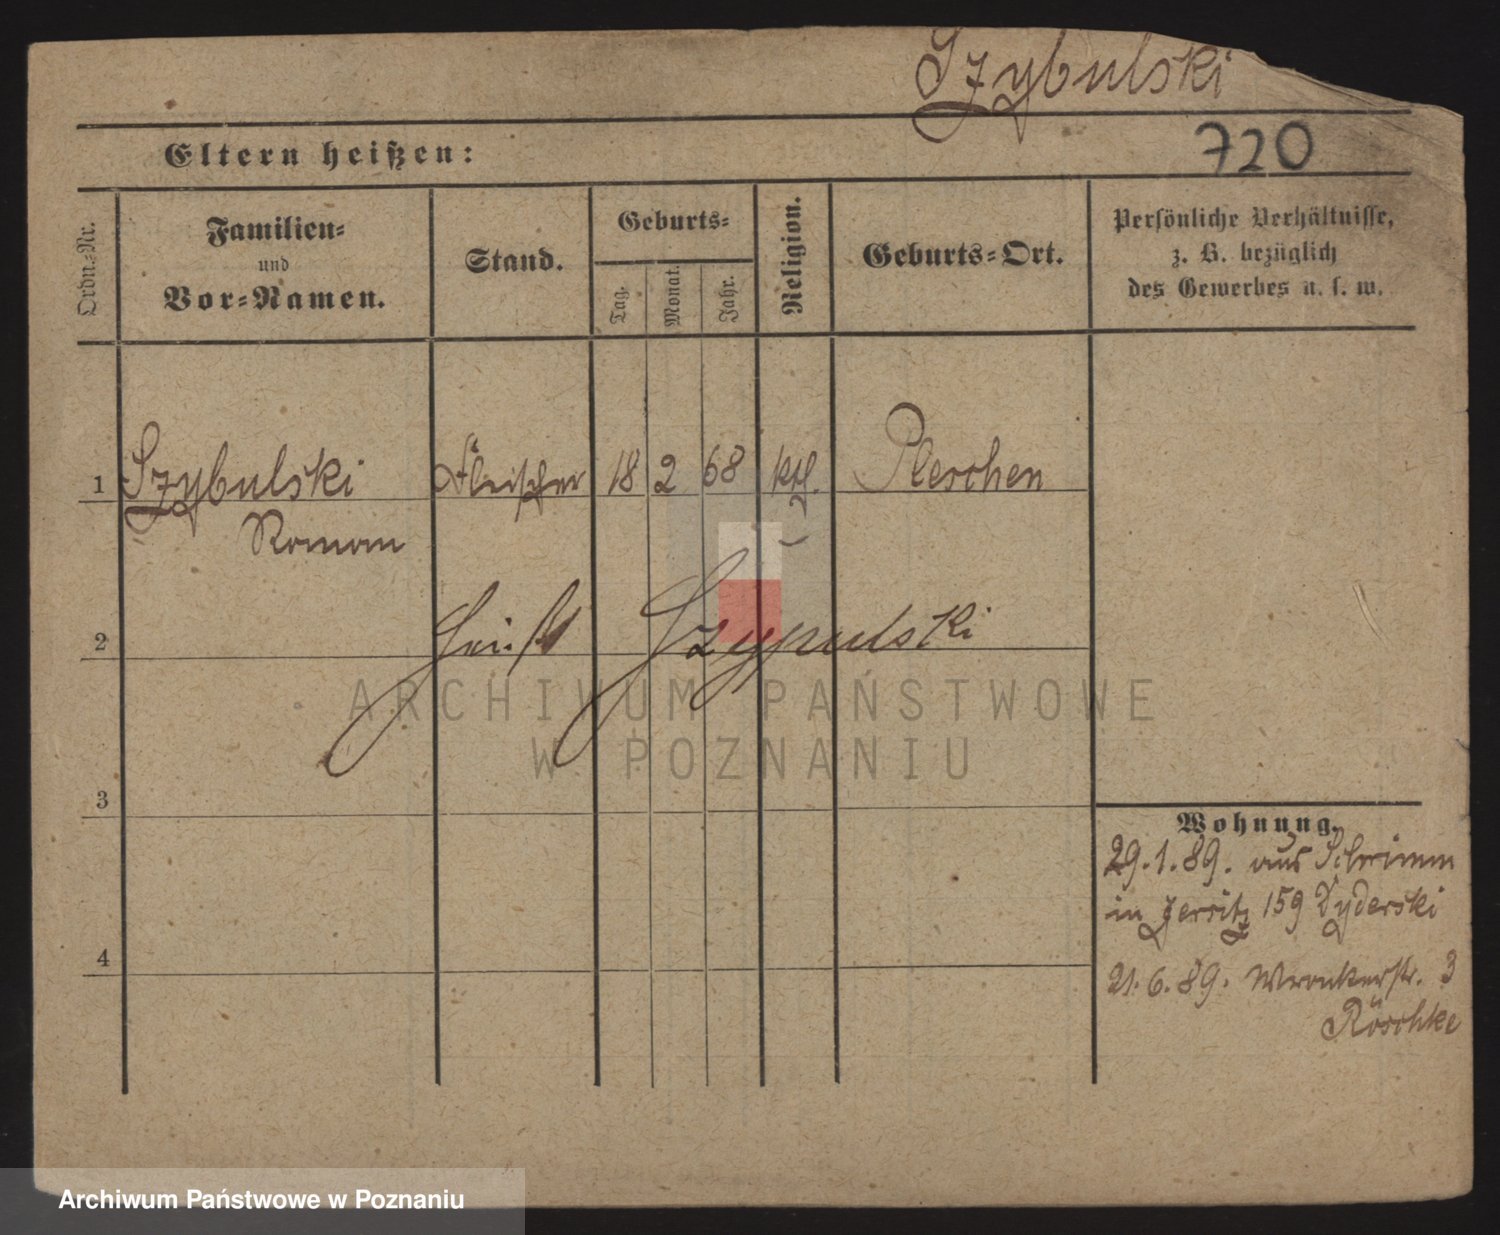 Szybulski
720
Eltern heißen:
Ordn.-Nr.
Familien-
und
Vor-Namen.
Stand.
Geburts-
Tag.
Monat.
Jahr.
Religion.
Geburts-Ort.
Persönliche Verhältnisse,
z. B. bezüglich
des Gewerbes u. s. w.
1 Szybulski Fleischer 18 2 68 ktl. Pleschen
Roman
2 heißt Szypulski
3
4
Wohnung.
29.1.89. aus Schrimm
in Jersitz 159 Dyderski
21.6.89. Wronkerstr. 3
Röschke
ARCHIWUM PAŃSTWOWE
W POZNANIU
Archiwum Państwowe w Poznaniu